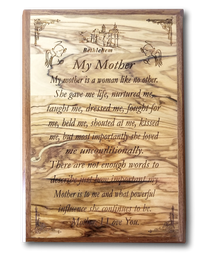 Bethlehem
My Mother
My mother is a woman like no other.
She gave me life, nurtured me,
taught me, dressed me, fought for
me, held me, shouted at me, kissed
me, but most importantly she loved
me unconditionally.
There are not enough words to
describe just how important my
Mother is to me and what powerful
influence she continues to be.
Mother I Love You